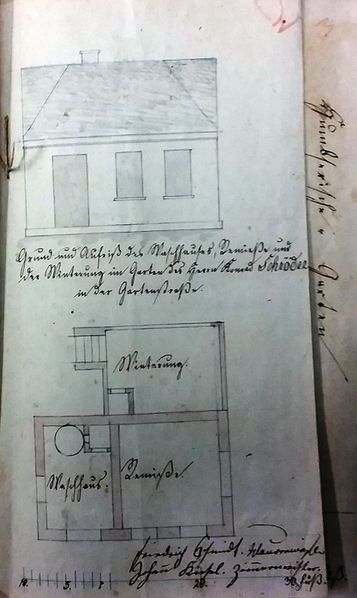 Grund und Aufriß des Waschhauses, Remiese und
der Winterung im Garten des Herrn Konrad Schröder
in der Gartenstraße.
Winterung.
Waschhaus.
Remiße.
Friedrich Schmidt. Maurermeister
Johann Zimmermeister.
10. 5. 1 20. 30. Fuß.
Garten